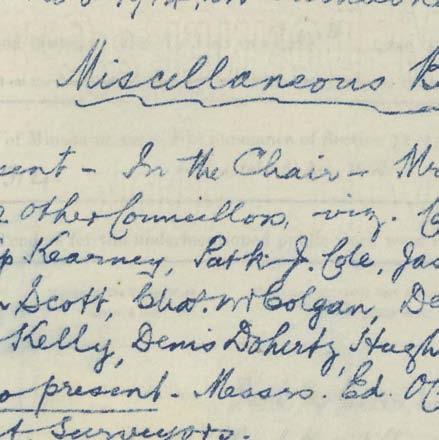 Miscellaneous B
sent - In the Chair - Mr
other Councillors, viz. C
p Kearney, Patk J. Cole, Jas
n Scott, Chas. McColgan, De
Kelly, Denis Doherty, Hugh
o present - Messrs. Ed. O
t Surveyors.